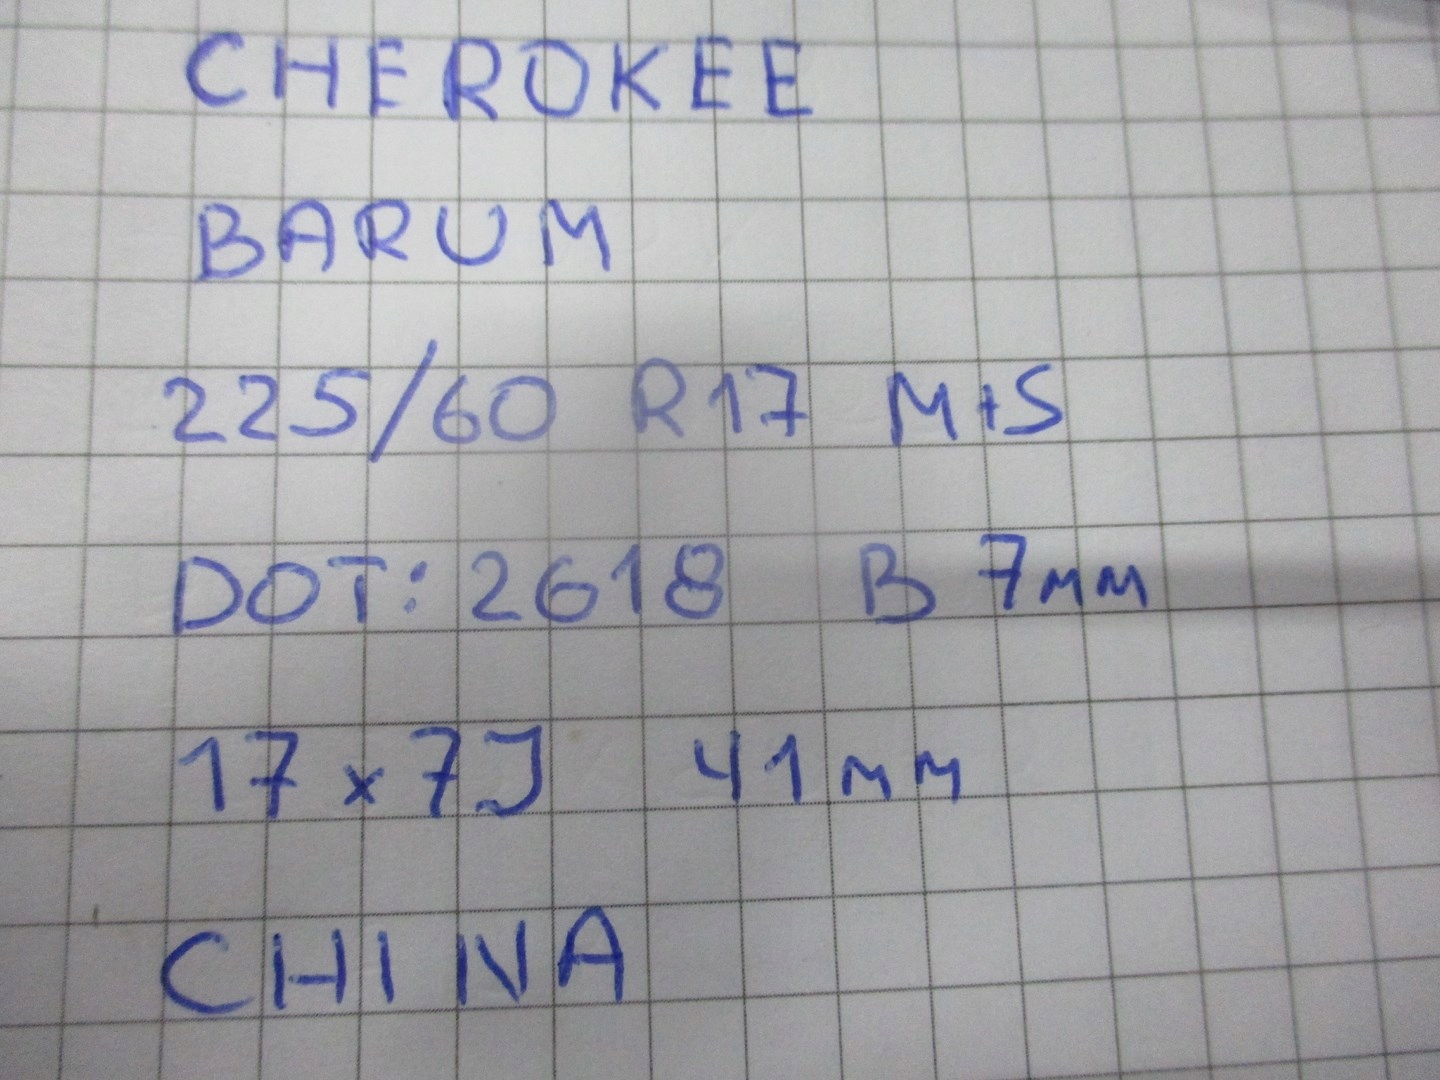 CHEROKEE
BARUM
225/60 R17 M+S
DOT: 2618 B 7mm
17x7J 41mm
CHINA